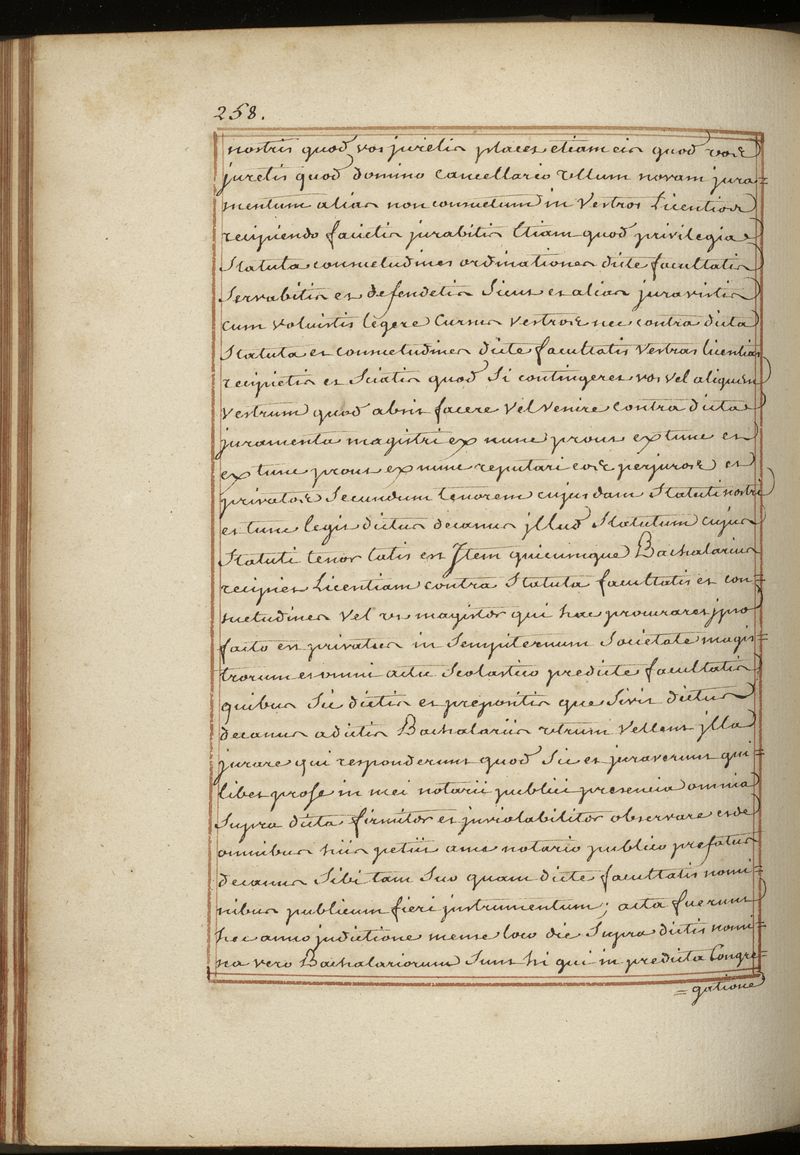 258.
nostris quod vos juretis placet etiam eis quod vos
juretis quod domino cancellario vllum novam jura=
mentum alias non consuetum in vestros Licentios
recipiendo facietis jurabitis Etiam quod privilegia
Statuta consuetudines ordinationes dicte facultatis
Servabitis et defendetis Sicut et alias juravistis
cum voluistis legere Cursus vestros nec contra dicta
Statuta et consuetudines dicte facultatis vestras licentias
recipietis et Sciatis quod Si contingeret vos vel aliquem
vestrum quod absit facere vel venire contra dicta
juramenta magistri ex nunc prout ex tunc et
ex tunc prout ex nunc reputari eos perjuros et
privatos Secundum tenorem cujusdam Statuti nostri
et tunc legit dictus decanus jllud Statutum cujus
Statuti tenor talis est Jtem quicumque Bachalarius
recipiet Licentiam contra Statuta facultatis et con=
suetudines vel vt magister qui hac procuraret jpso
facto est privatus in Sempiternum Societate magis=
trorum et omni actu Scolastico predicte facultatis
quibus Sic dictis et prepositis quesivit dictus
decanus a dictis Bachalariis vtrum vellent jlla
jurare qui responderunt quod Sic et juraverunt qui=
libet pro se in mei notarii publici presencia omnia
Supra dicta firmiter et jnviolabiliter observare et de
omnibus hiis petiit a me notario publico prefatus
decanus Sibi tam Suo quam dicte facultatis nomi=
nibus publicum fieri jnstrumentum; acta fuerunt
hec anno jndictione mense loco die Supra dictis nomi=
na vero Bachalariorum Sunt hi qui in predicta Congre=
=gatione